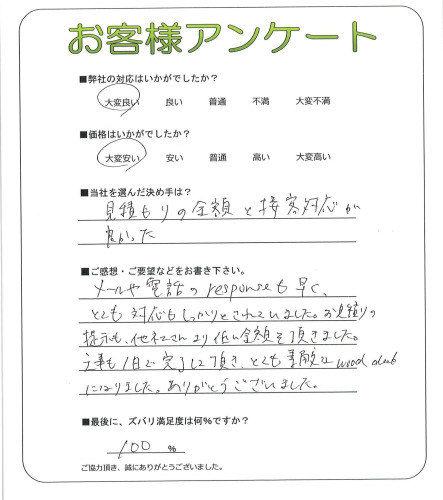 お客様アンケート
■弊社の対応はいかがでしたか？
大変良い 良い 普通 不満 大変不満
■価格はいかがでしたか？
大変安い 安い 普通 高い 大変高い
■当社を選んだ決め手は？
見積もりの金額と接客対応が
良かった
■ご感想・ご要望などをお書き下さい。
メールや電話のresponseも早く、
とても対応もしっかりとされていました。お見積りの
提示も、他社さんより低い金額を頂きました。
工事も1日で完了して頂き、とても素敵な wood
になりました。ありがとうございました。
■最後に、ズバリ満足度は何%ですか？
100 %
ご協力頂き、誠にありがとうございました。